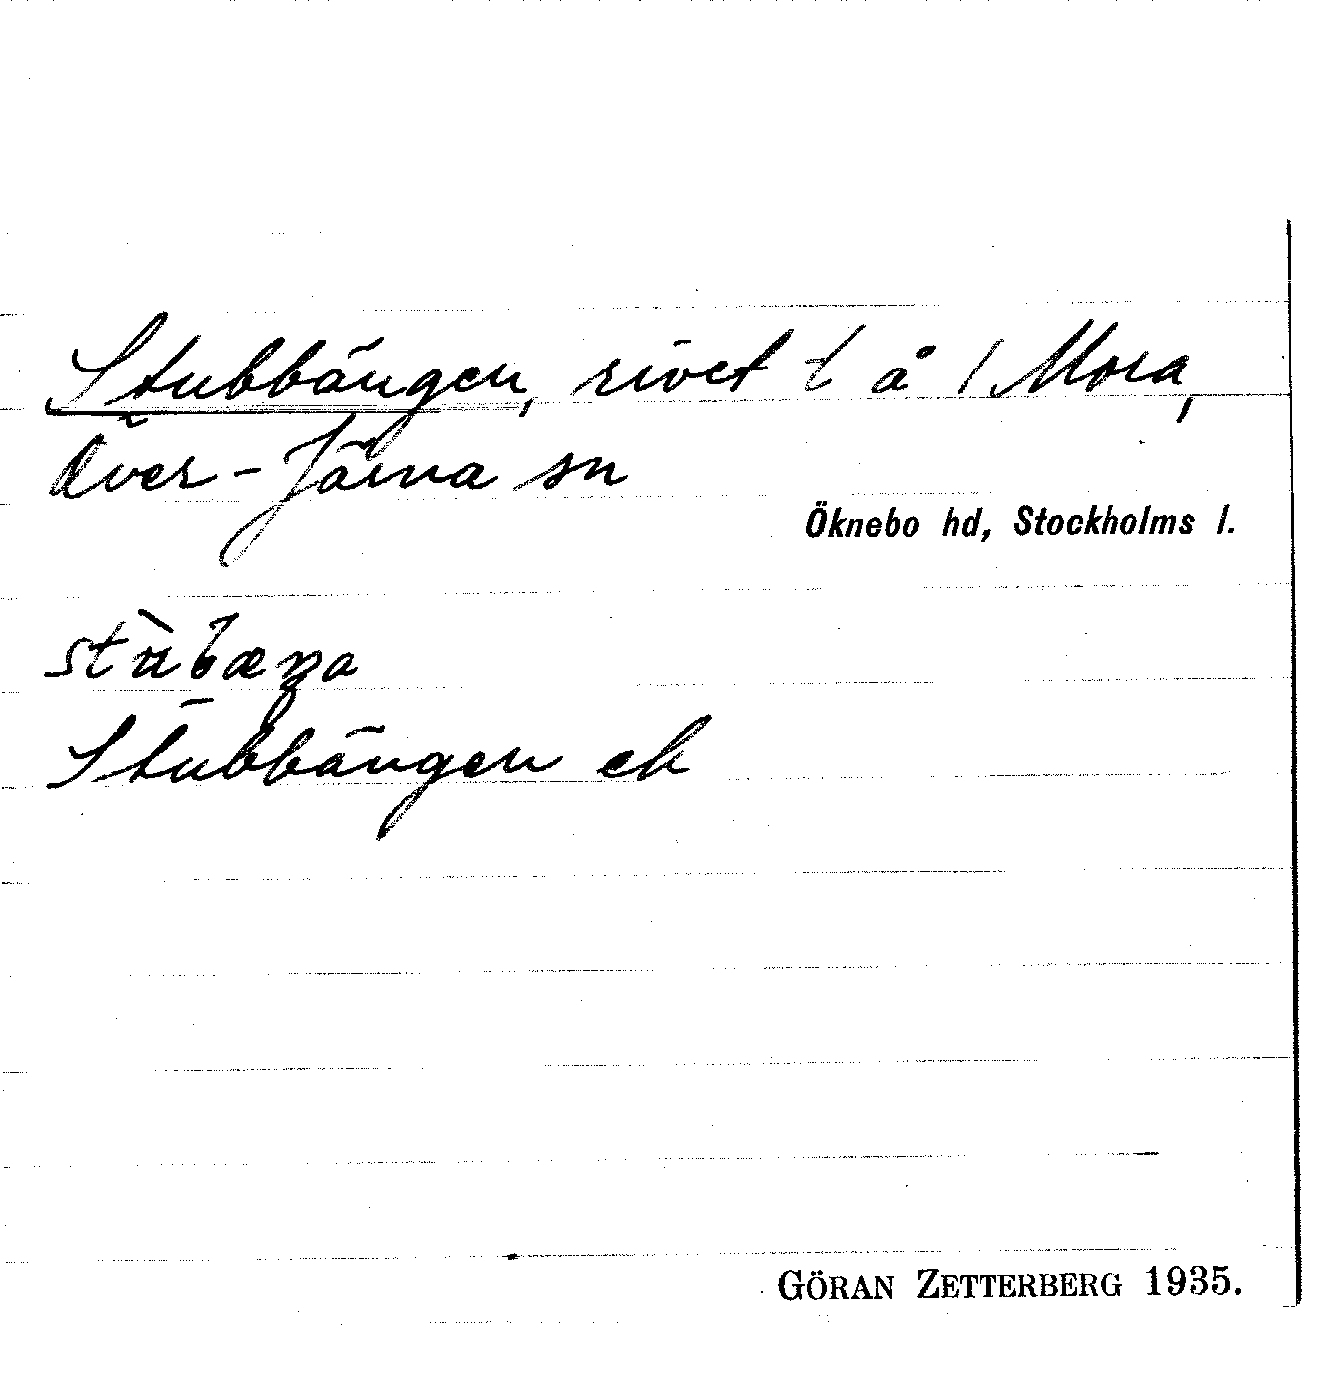 Stubbängen, rivet t å / Mora,
Över-Järna sn
Öknebo hd, Stockholms l.
Stubbängen ek
GÖRAN ZETTERBERG 1935.